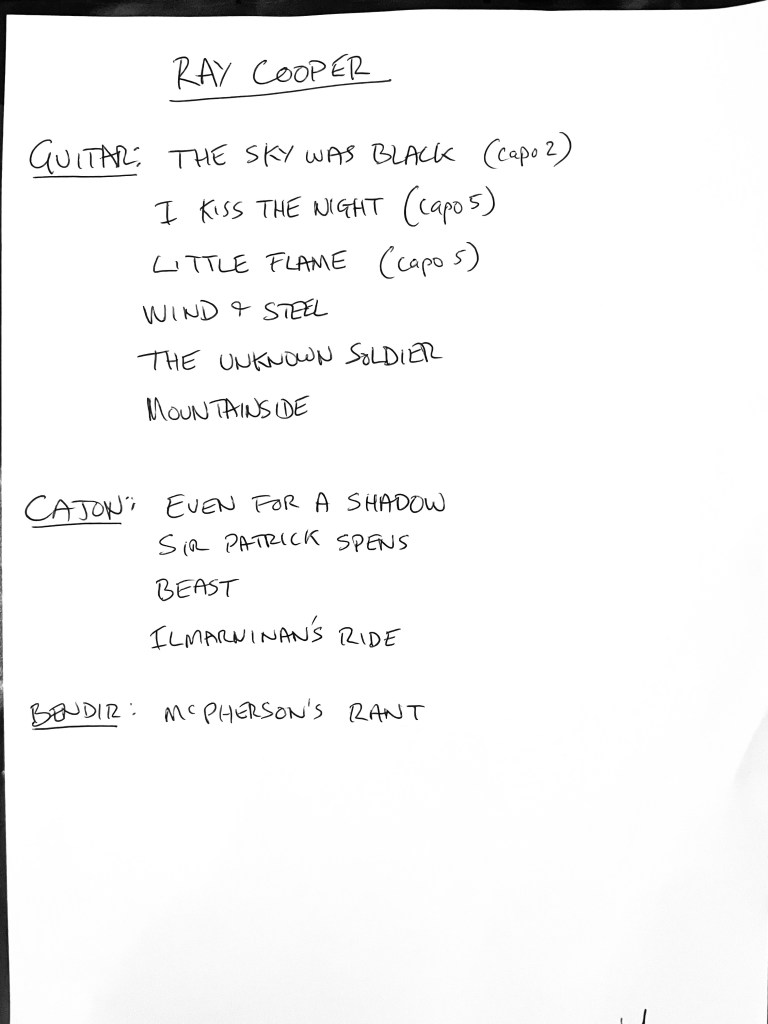 RAY COOPER
GUITAR: THE SKY WAS BLACK (capo 2)
I KISS THE NIGHT (capo 5)
LITTLE FLAME (capo 5)
WIND & STEEL
THE UNKNOWN SOLDIER
MOUNTAINSIDE
CAJON: EVEN FOR A SHADOW
SIR PATRICK SPENS
BEAST
ILMARNINAN'S RIDE
BENDIR: MCPHERSON'S RANT